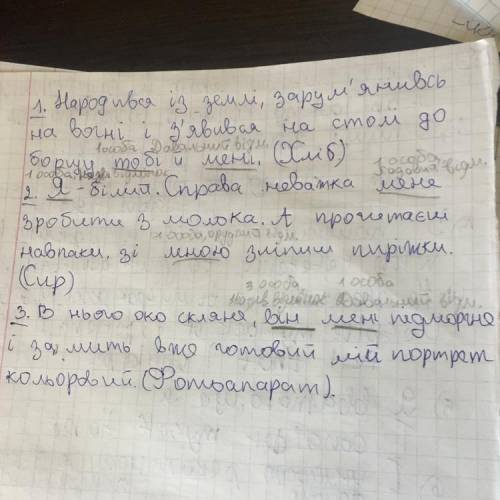 1. Народився із землі, зарум'янивсь
на вогні і з'явився на стол до
1 особа Давальний відм.
борщу тобі й мені. (Хліб)
1 особа Назив. відмінок
1 особа Родовий відм.
2. Я - білий. Справа неважка мене
зробити з молока. А прочитаєш
1 особа, орудний відм.
навпаки, зі мною зліпиш пиріжки.
(Сир)
3 особа 1 особа
Назив відмінок Давальний відм.
3. В нього око скляне, він мені підморгне
і за мить вже готовий мій портрет
кольоровий. (Фотоапарат).